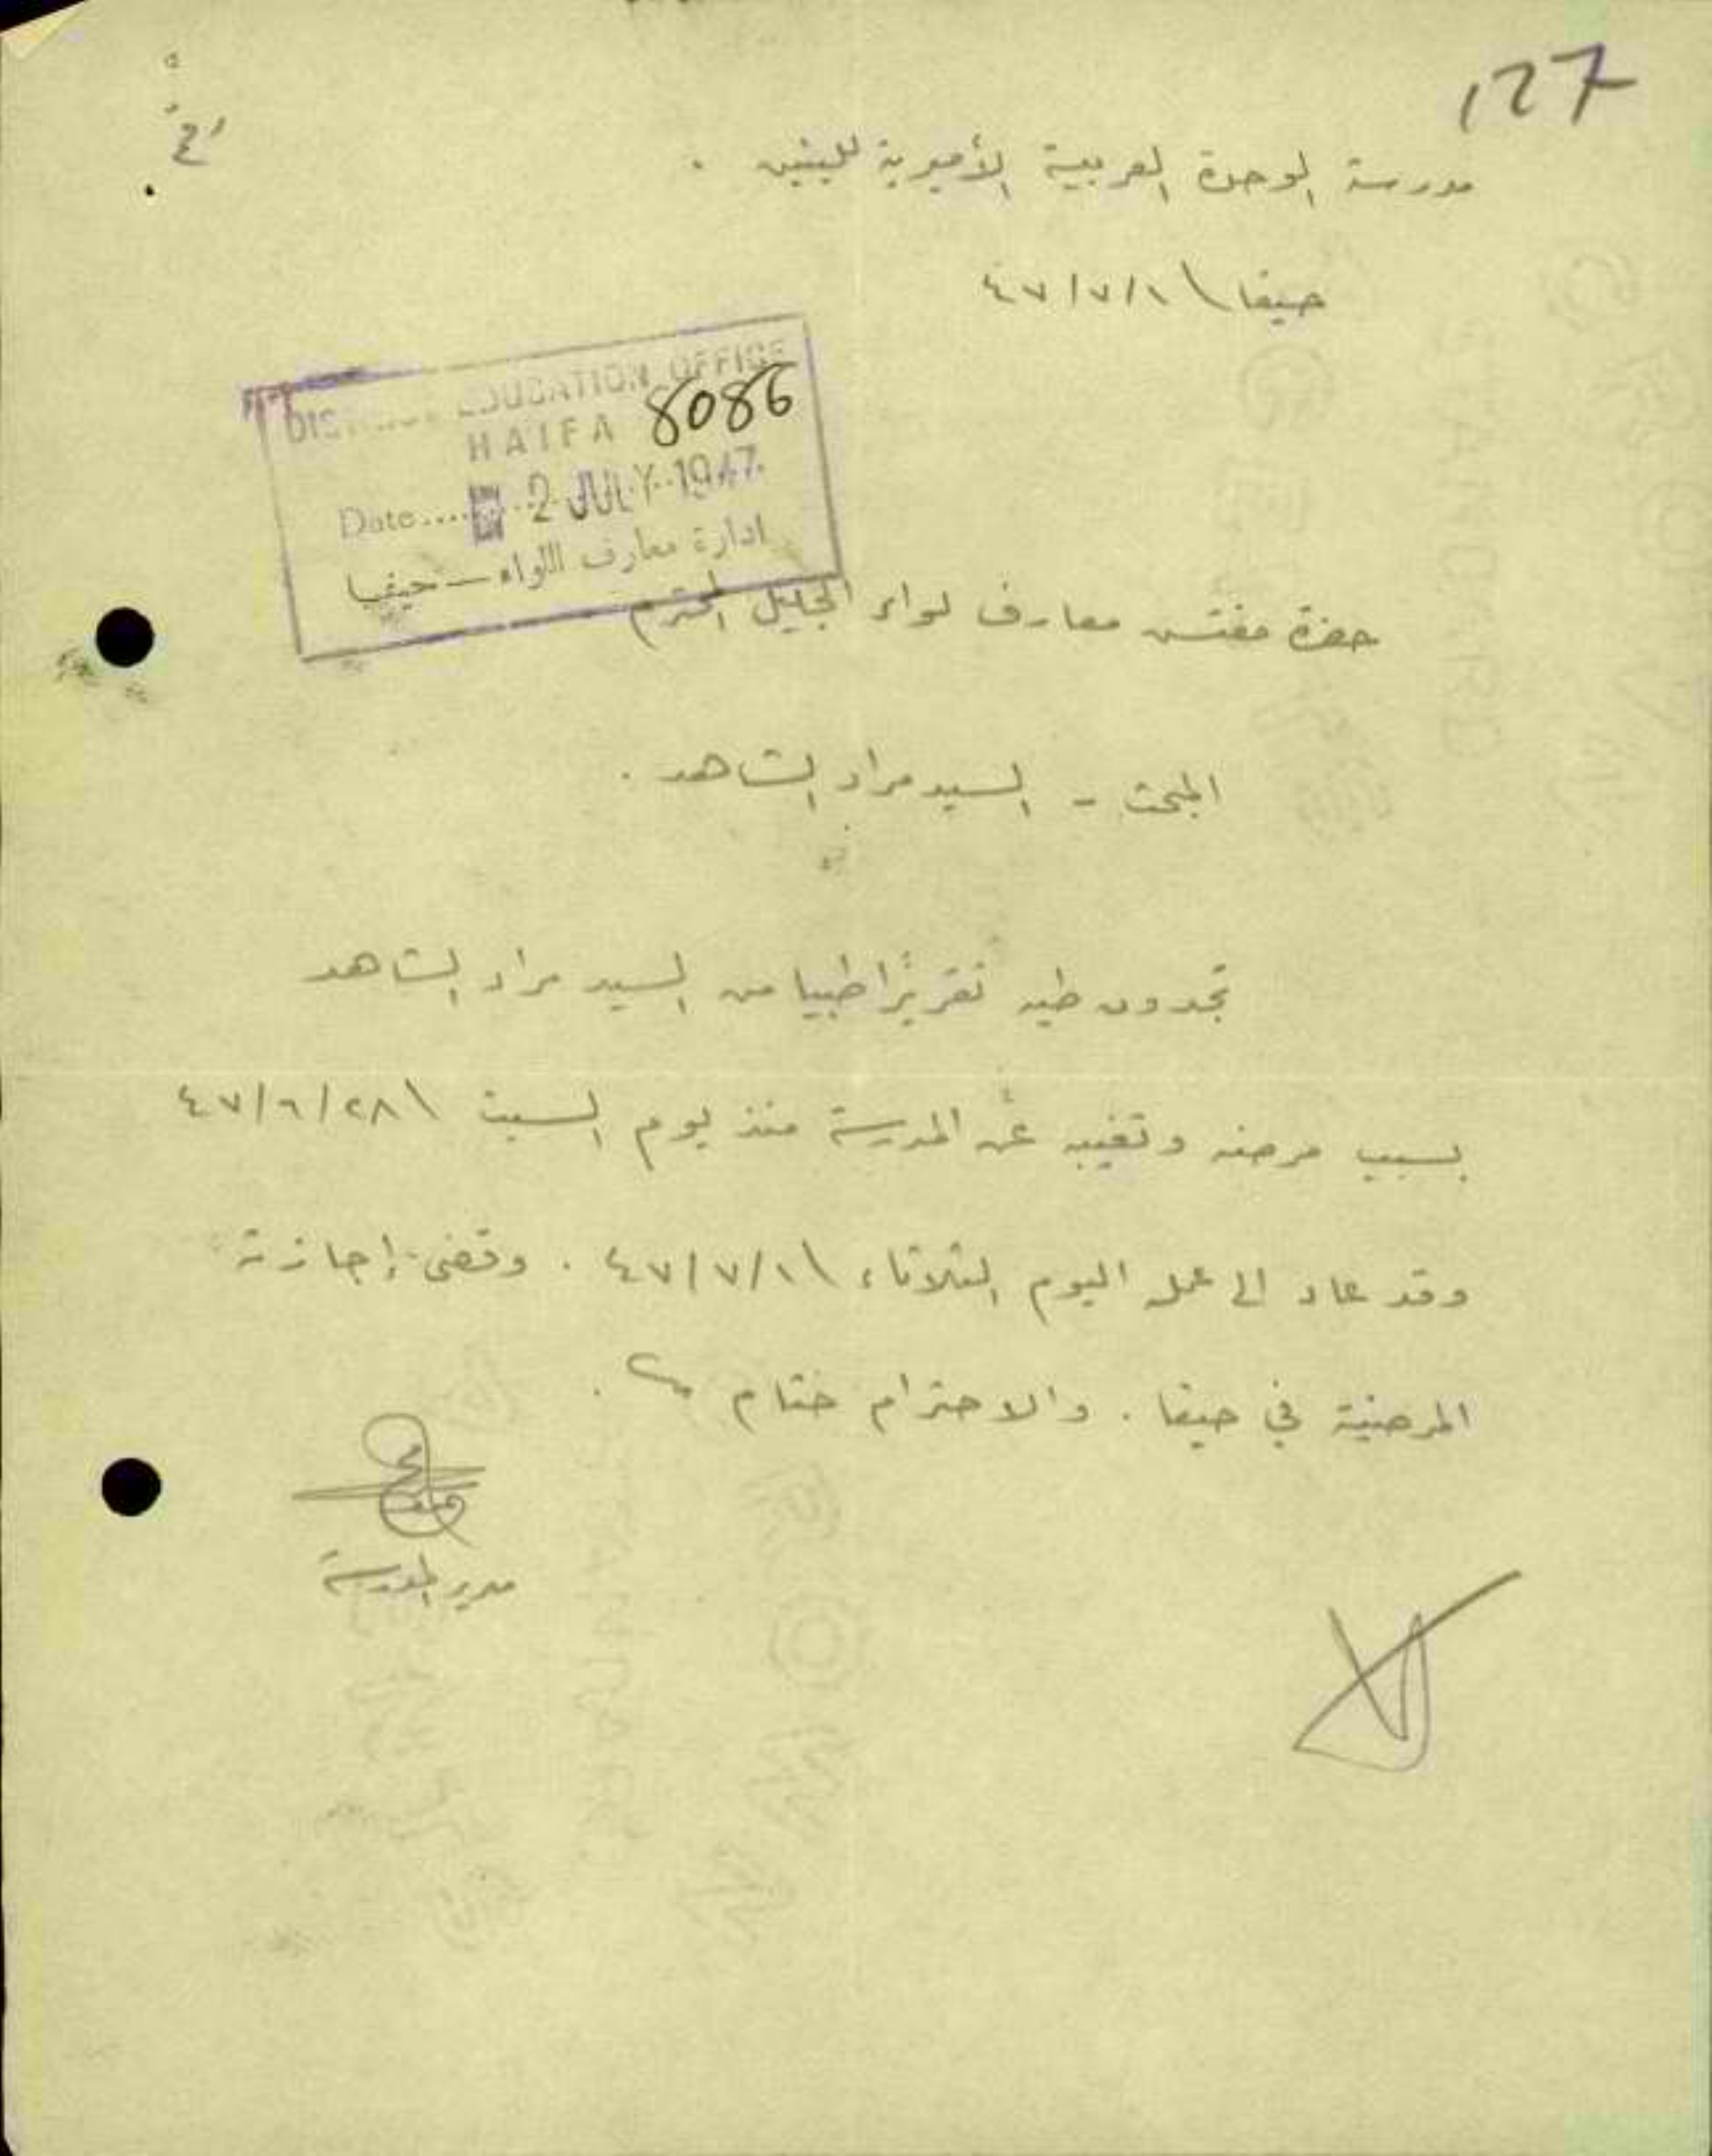 127
مدرسة الوحدة العربية الأميرية للبنين .
حيفا \ ٤٧/٧/١
DISTRICT EDUCATION OFFICE
HAIFA 8086
Date.... 2 JULY 1947
ادارة معارف اللواء – حيفا
حضرة مفتش معارف لواء الجليل المحترم
المبحث - السيد مراد الشاهد .
تجدون طيه تقريرًا طبيا من السيد مراد الشاهد
بسبب مرضه وتغيبه عن المدرسة منذ يوم السبت \ ٤٧/٦/٢٨
وقد عاد الى عمله اليوم الثلاثاء \ ٤٧/٧/١ . وقضى إجازته
المرضية في حيفا . والاحترام ختام .
مدير المدرسة